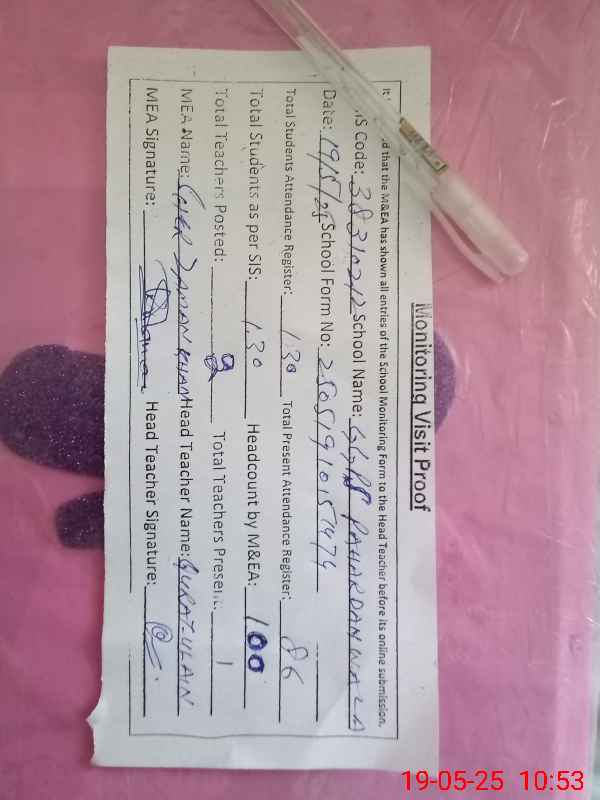 Monitoring Visit Proof
It d that the M&EA has shown all entries of the School Monitoring Form to the Head Teacher before its online submission.
IS Code: 38310212 School Name: GGPS PAHARDANWALA
Date: 19/5/25 School Form No: 25051910157474
Total Students Attendance Register: 130 Total Present Attendance Register: 86
Total Students as per SIS: 130 Headcount by M&EA: 100
Total Teachers Posted: Total Teachers Present: 1
MEA Name: SHER ZAMAN KHAN Head Teacher Name: QURAT-ULAIN
MEA Signature: Head Teacher Signature:
19-05-25 10:53